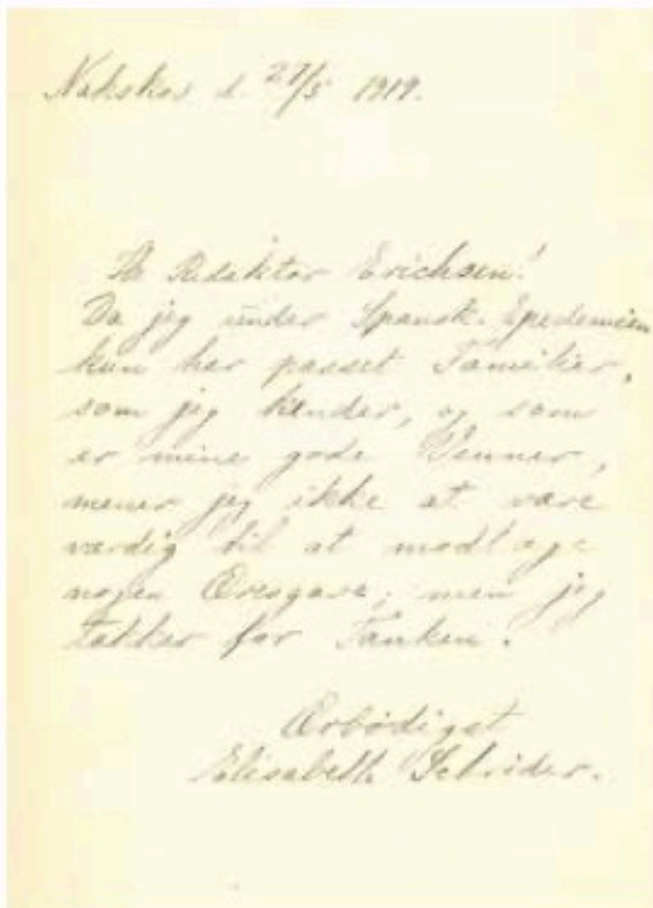 Nakskov d. 27/5 1919.
Hr. Redaktør Erichsen!
Da jeg under Spansk-Epedemien
kun har passet Familier,
som jeg kender, og som
er mine gode Venner,
mener jeg ikke at være
værdig til at modtage
nogen Æresgave; men jeg
takker for Tanken.
Ærbødigst
Elisabeth Schrøder.